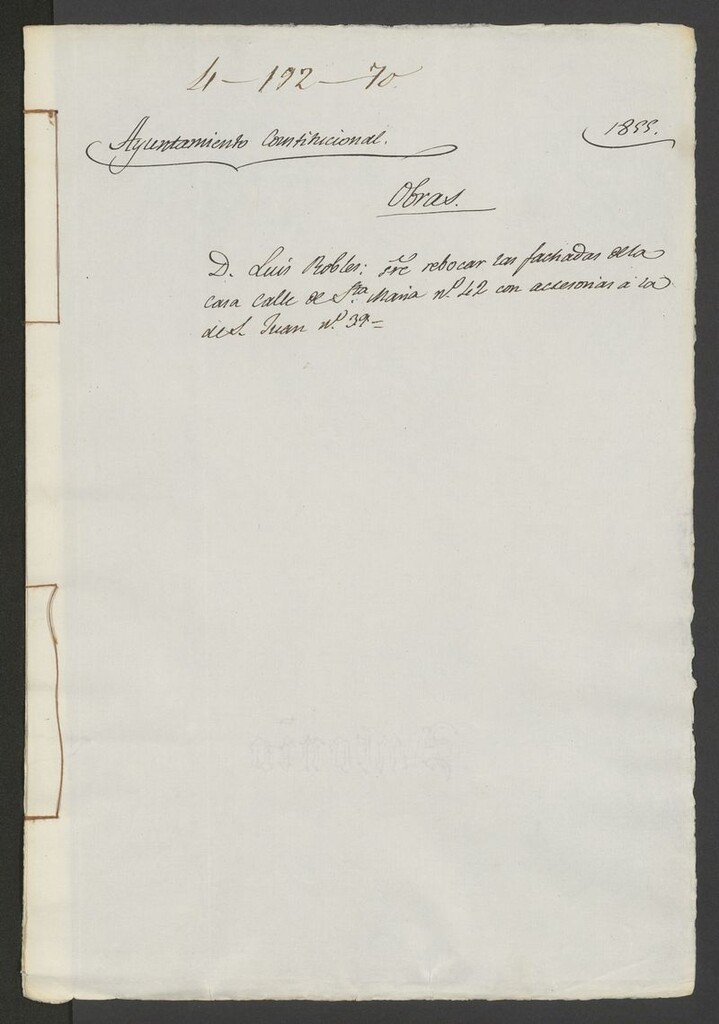 4-192-70
Ayuntamiento Constitucional.
1855.
Obras.
D. Luis Robles; sre rebocar las fachadas de la
casa calle de Sta. Maria nº. 42 con accesorias a la
de S. Juan nº. 39=